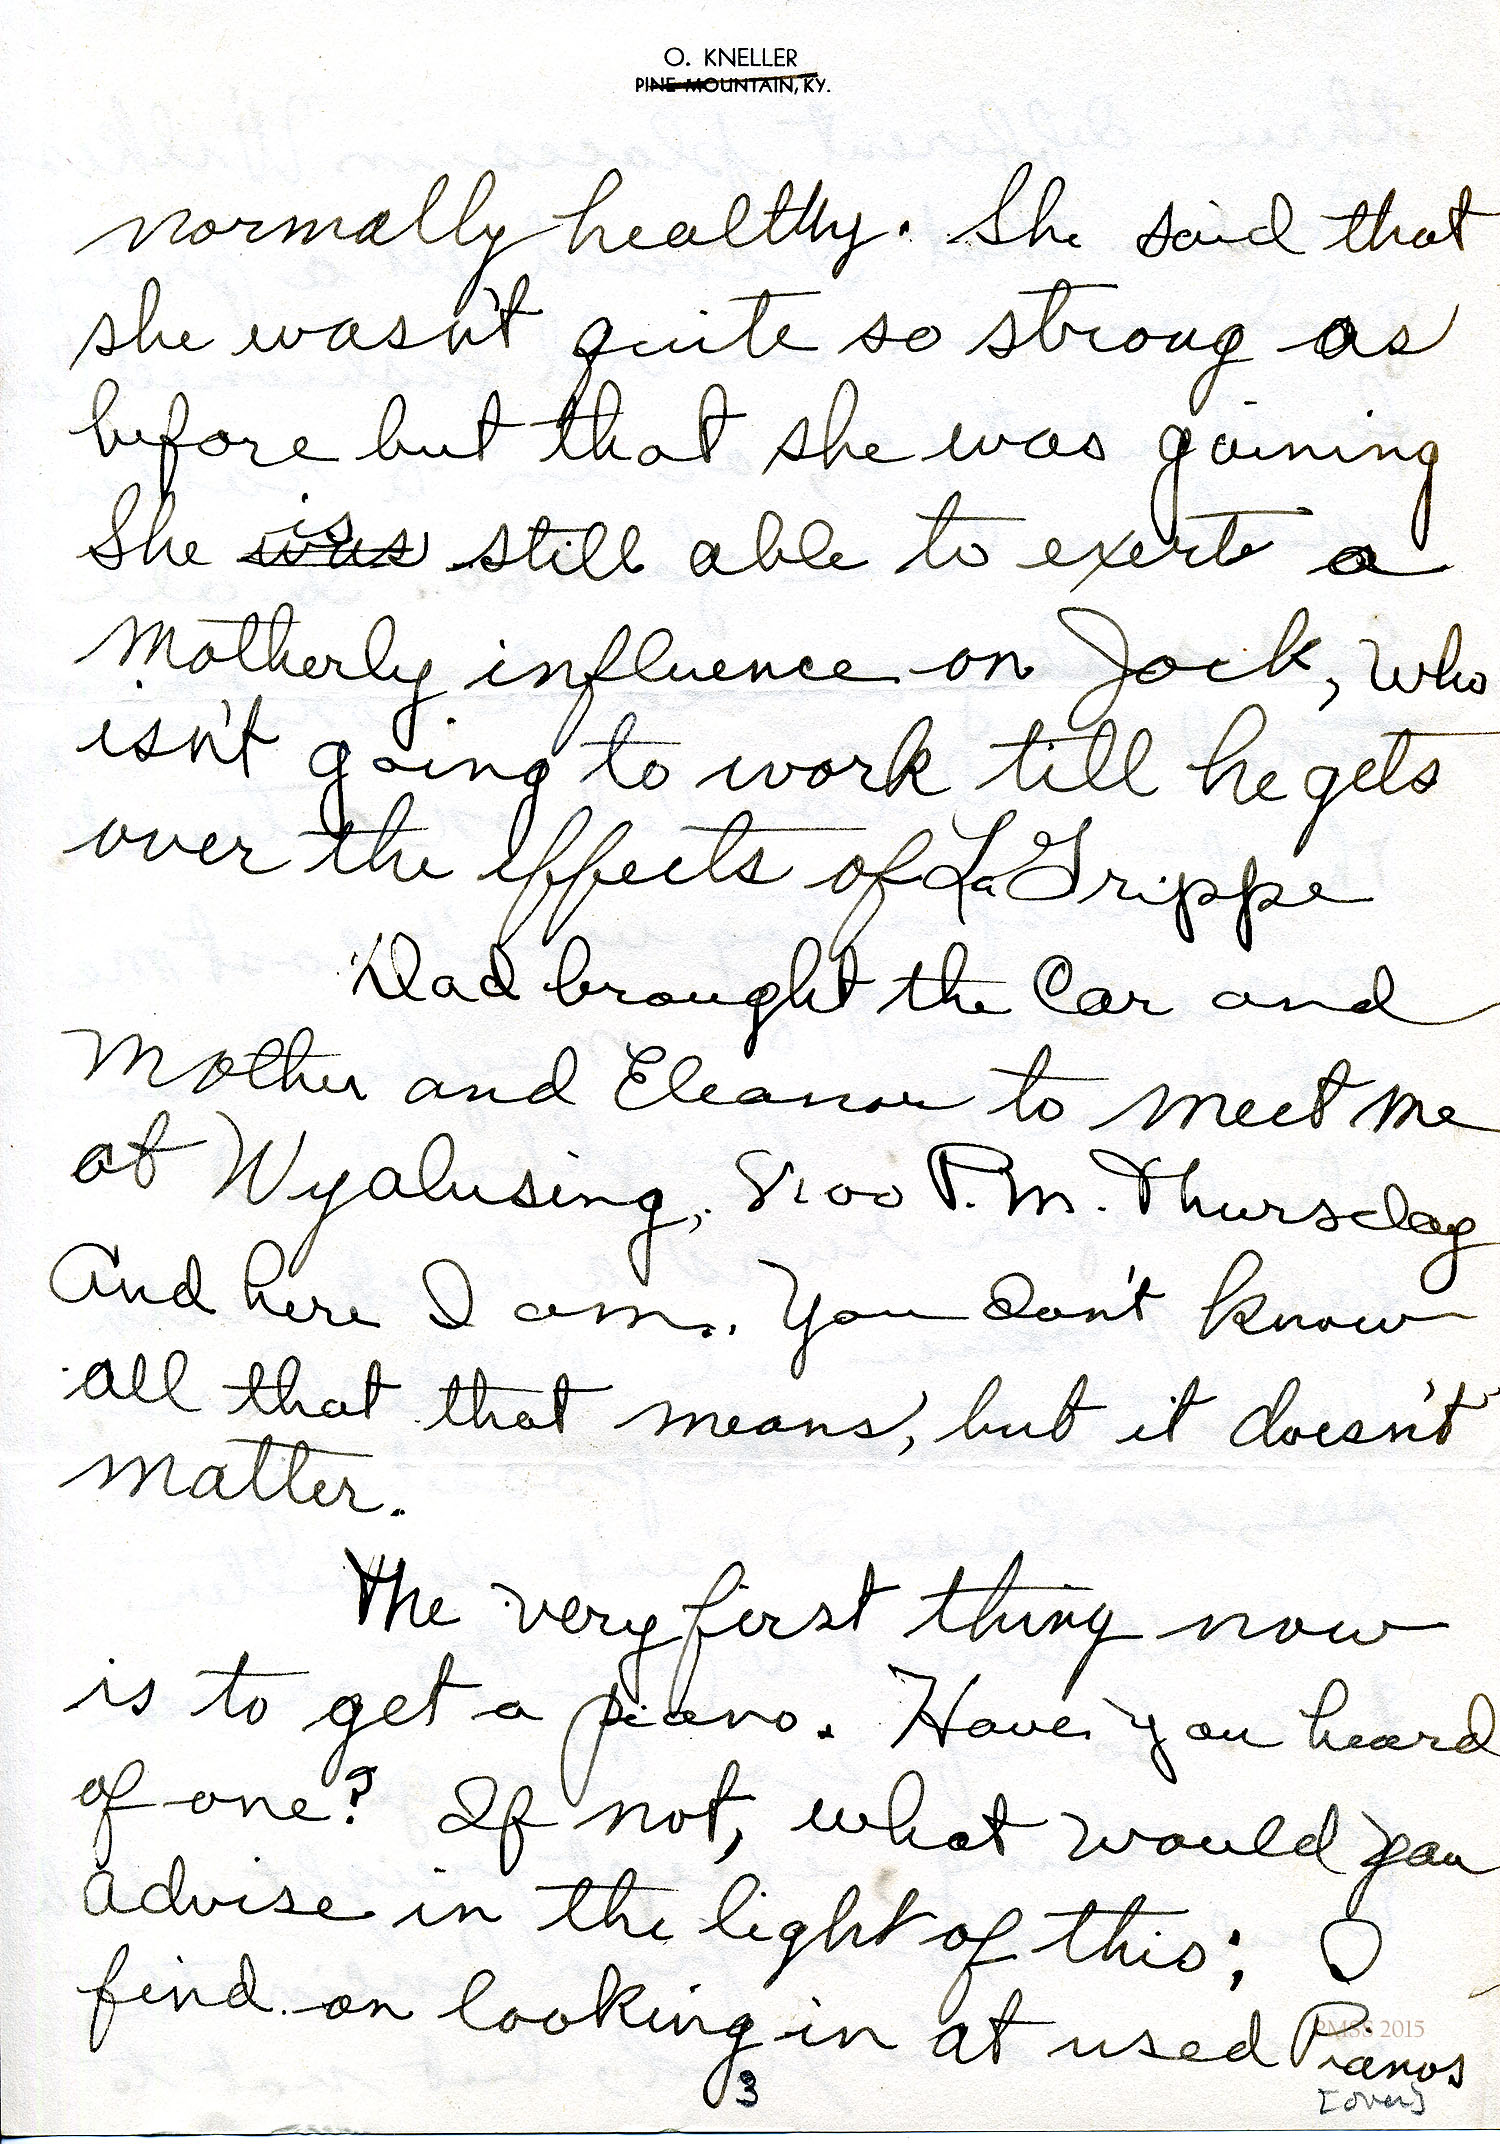 O. KNELLER
PINE MOUNTAIN, KY.
normally healthy. She said that
she wasn't quite so strong as
before but that she was gaining
She was is still able to exert a
motherly influence on Jock, who
isn't going to work till he gets
over the effects of La Grippe
Dad brought the Car and
Mother and Eleanor to meet me
at Wyalusing, 8:00 P.M. Thursday
And here I am. You don't know
all that that means, but it doesn't
matter.
The very first thing now
is to get a piano. Have you heard
of one? If not, what would you
advise in the light of this; I
find on looking in at used Pianos
PMSS 2015
3
[over]